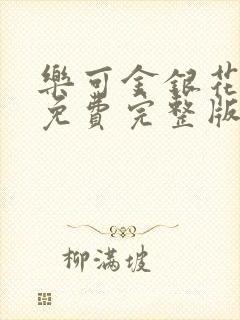 樂可金銀花
免費完整版
柳滿坡